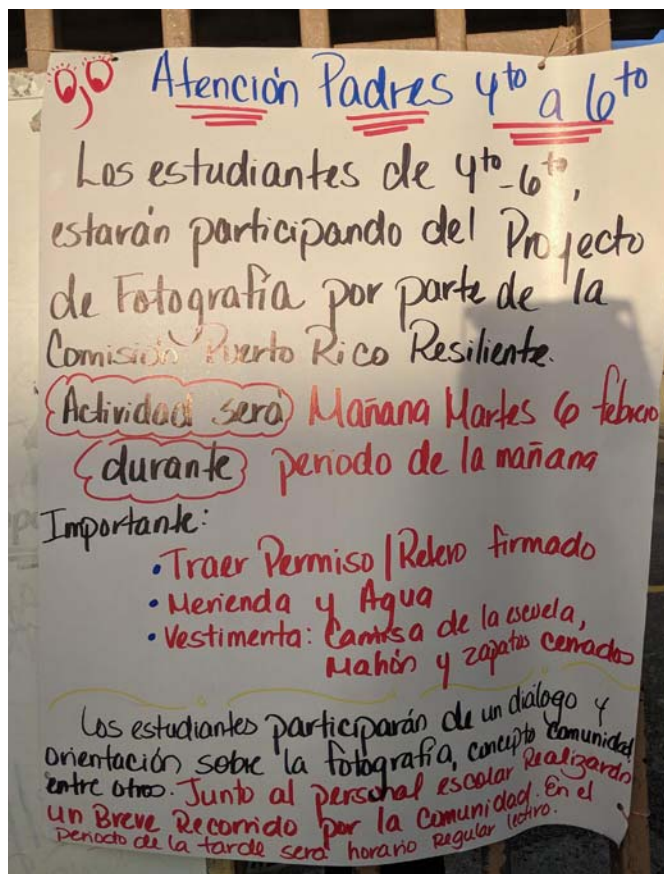 Ojo Atención Padres 4to a 6to
Los estudiantes de 4to-6to,
estarán participando del Proyecto
de Fotografía por parte de la
Comisión Puerto Rico Resiliente.
Actividad será Mañana Martes 6 febrero
durante periodo de la mañana
Importante:
• Traer Permiso/Relevo firmado
• Merienda y Agua
• Vestimenta: Camisa de la escuela,
Mahón y zapatos cerrados
Los estudiantes participarán de un diálogo y
orientación sobre la fotografía, concepto comunidad,
entre otros. Junto al personal escolar Realizarán
un Breve Recorrido por la Comunidad. En el
periodo de la tarde será horario Regular lectivo.